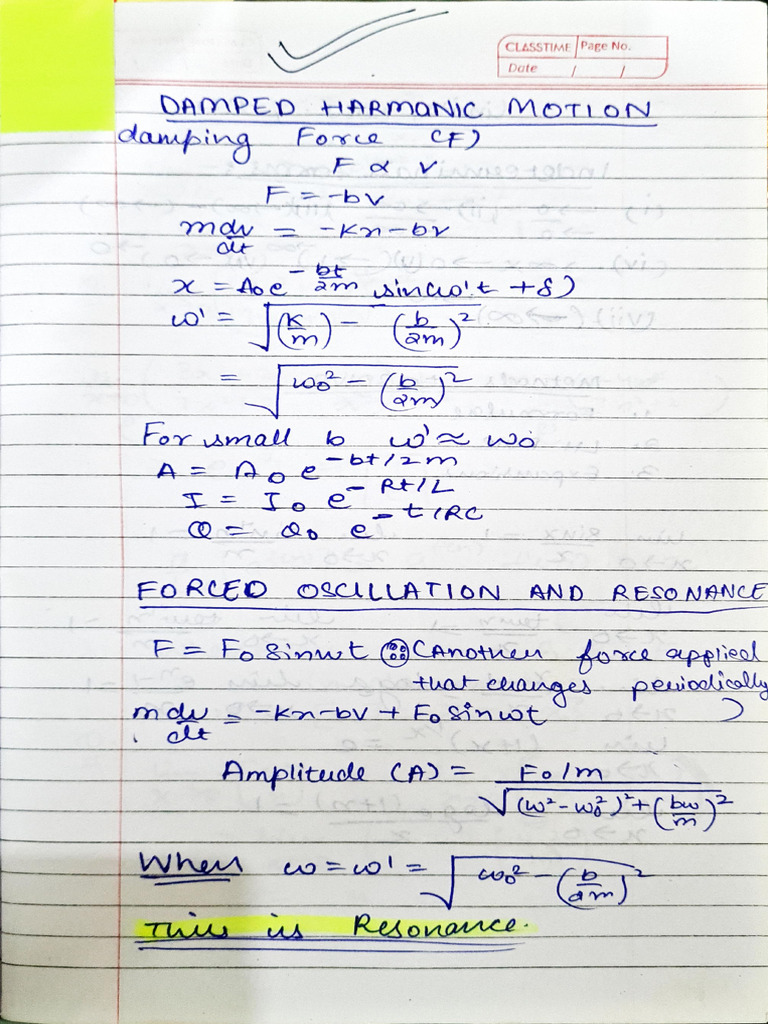 CLASSTIME Page No.
Date / /
DAMPED HARMONIC MOTION
damping Force (F)
F ∝ v
F = -bv
m dv/dt = -kx - bv
x = A₀e^(-bt/2m) sin(ω't + δ)
ω' = √((K/m) - (b/2m)²)
= √(ω₀² - (b/2m)²)
For small b ω' ≈ ω₀
A = A₀ e^(-bt/2m)
I = I₀ e^(-Rt/L)
Q = Q₀ e^(-t/RC)
FORCED OSCILLATION AND RESONANCE
F = F₀ sinωt (Another force applied
that changes periodically
m dv/dt = -kx - bv + F₀ sin ωt )
Amplitude (A) = F₀/m / √((ω² - ω₀²)² + (bω/m)²)
When ω = ω' = √(ω₀² - (b/2m)²)
This is Resonance.